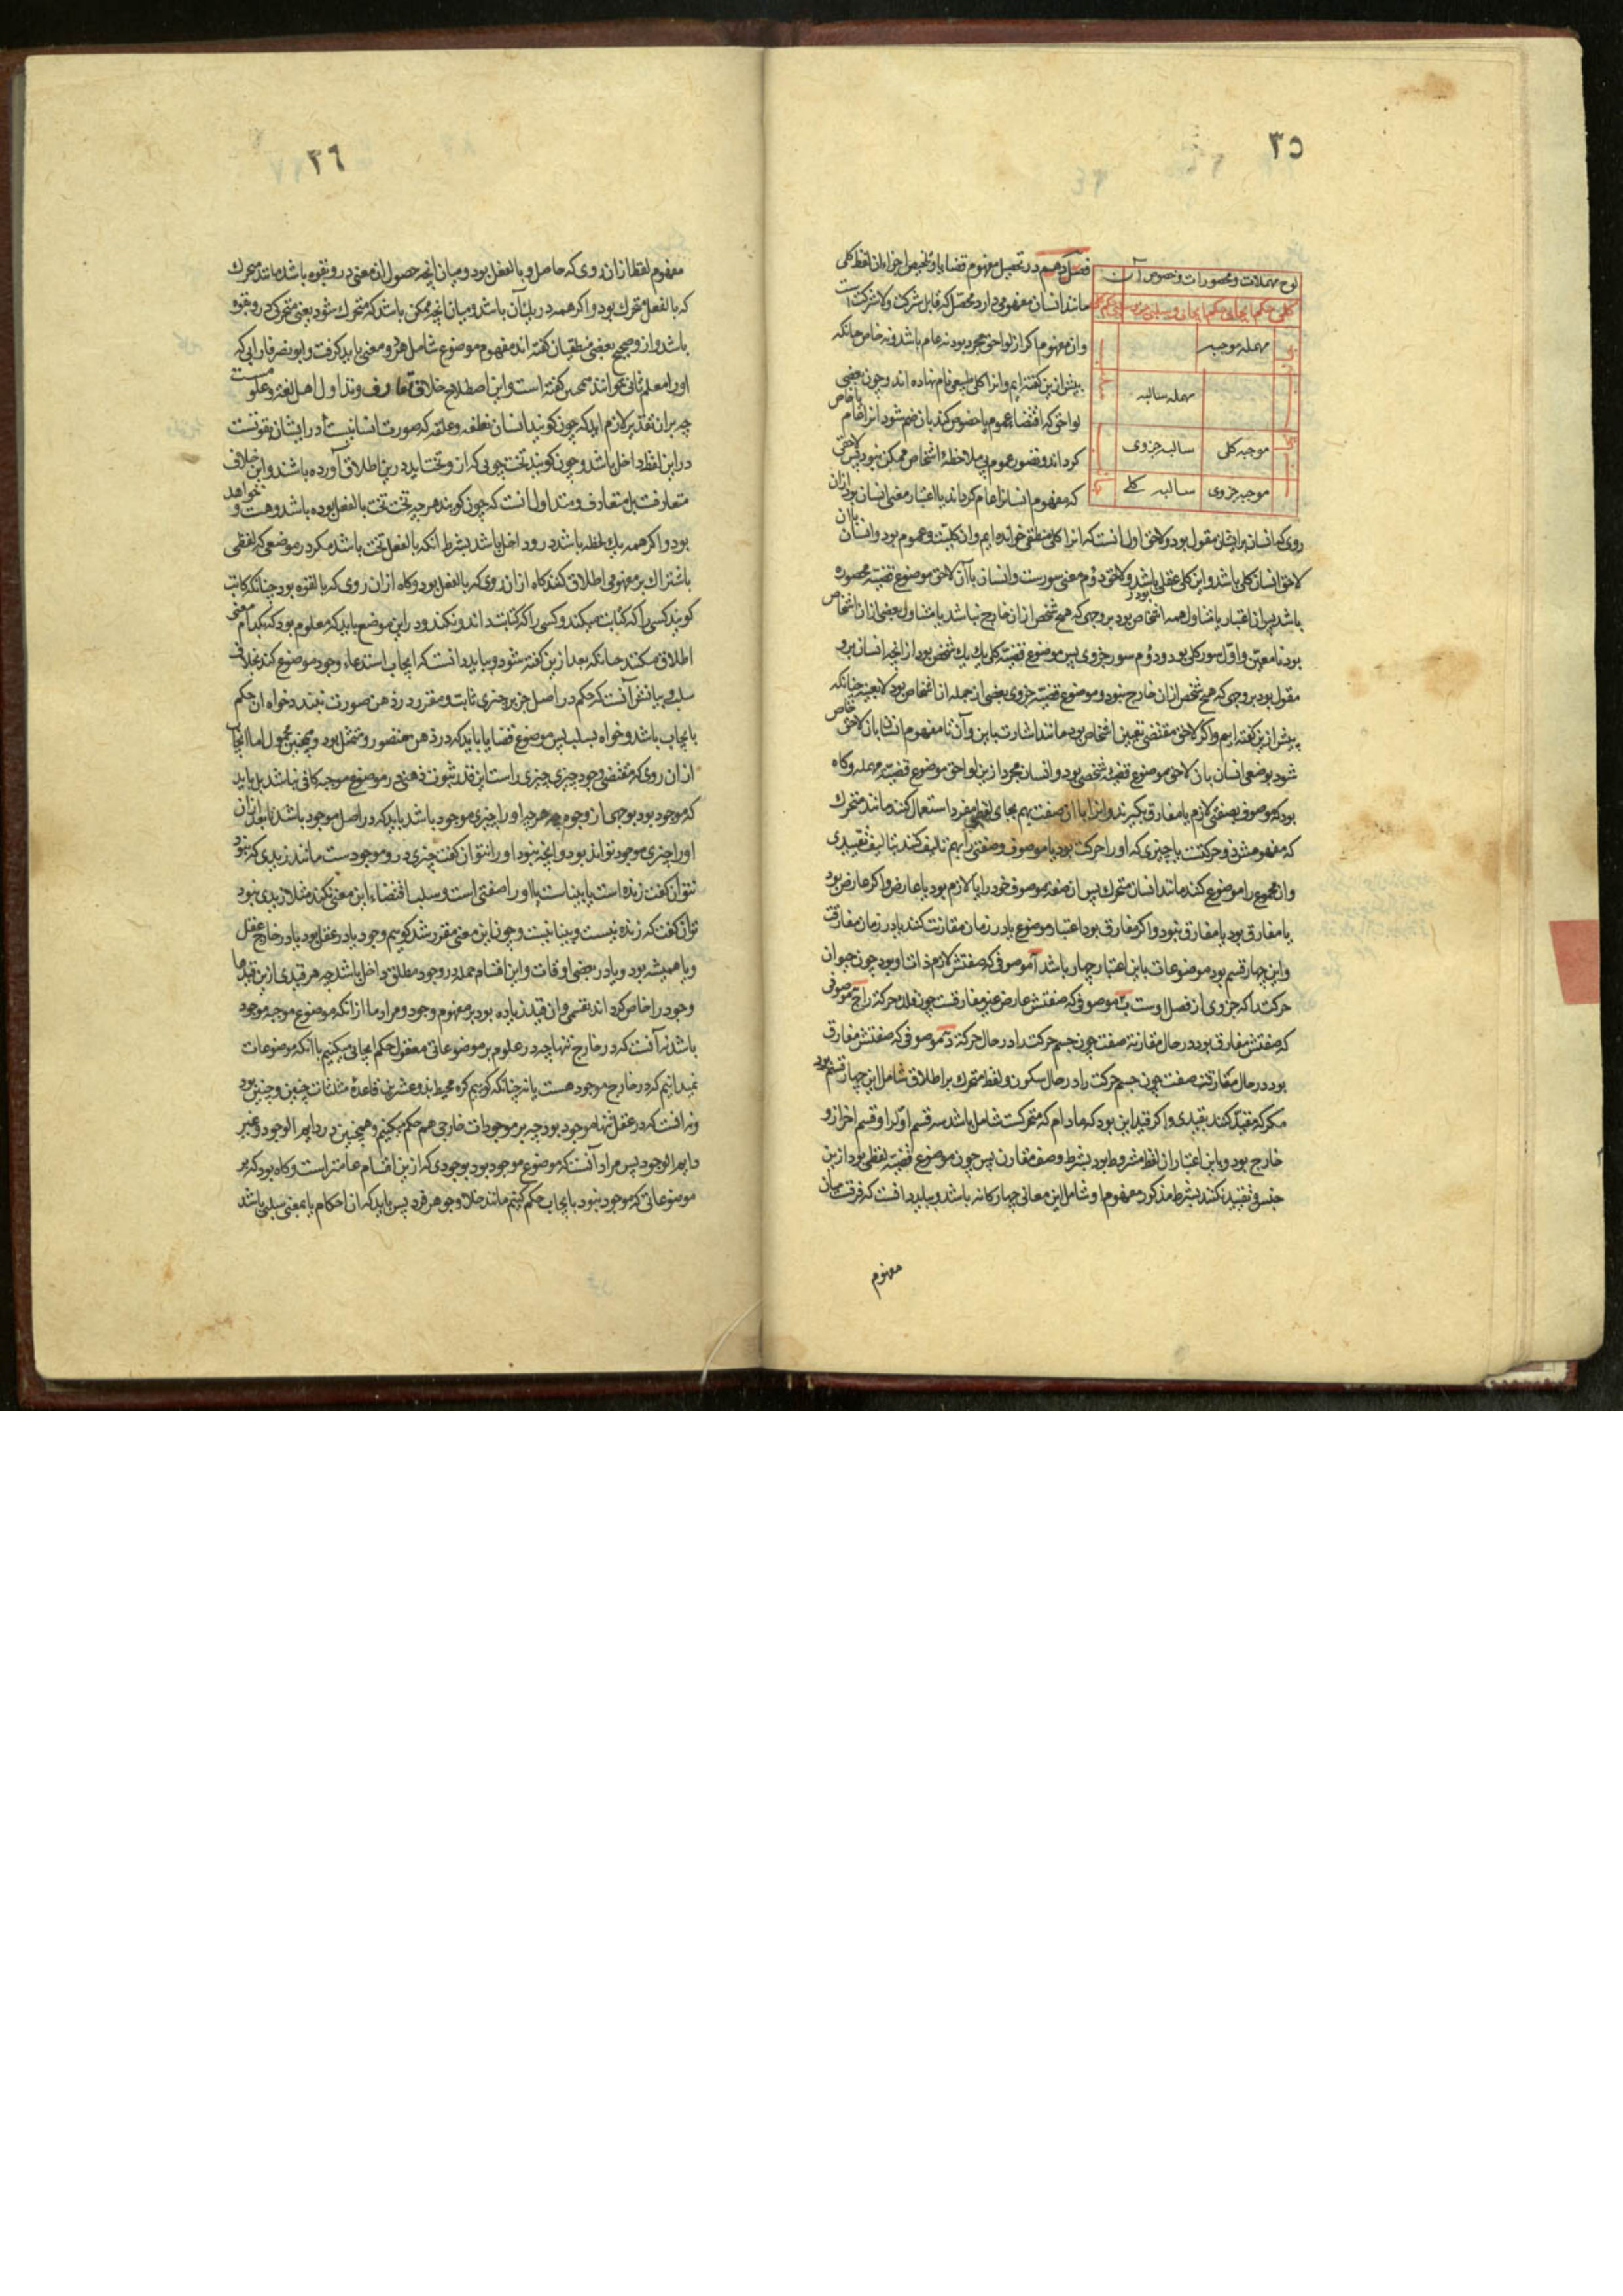 ٣٥
لوح مهملات و محصورات و خصوص آن
مهمله موجبه
مهمله سالبه
موجبه کلی سالبه جزوی
موجبه جزوی سالبه کلے
فصل دهم در تحصیل مفهوم قضایا و تلخیص اجزاء آن لفظ کلی
مانند انسان مفهومی دارد محصل که قابل شرکت و لاشرکت است
وان مفهوم اکر از لواحق مجرد بود نه عام باشد و نه خاص چنانکه
بیش ازین کفته ایم و انرا کلی طبیعی نام نهاده اند و چون بعضی
لواحق که اقتضاء عموم یا خصوص کند بان ضم شود انرا عام یا خاص
کرداند و تصور عموم بی ملاحظهٔ اشخاص ممکن نبود پس لاحقی
که مفهوم انسانرا عام کرداند یا اعتبار معنی انسان بود ازان
روی که انسان بر ایشان مقول بود و لاحق اول انست که انرا کلی منطقی خوانده ایم و ان کلیت و عموم بود و انسان با ان
لاحق انسان کلی باشد و این کلی عقلی باشد و لاحق دوم معنی سورست و انسان با آن لاحق موضوع قضیّه محصوره
باشد پس ان اعتبار یا متناول همه اشخاص بود بر وجهی که هیچ شخص ازان خارج نباشد یا متناول بعضی ازان اشخاص
بود نامعین و اوّل سور کلی بود و دوم سور جزوی پس موضوع قضیّه کلی یك یك شخص بود از انچه انسان برو
مقول بود بر وجهی که هیچ شخص ازان خارج نبود و موضوع قضیّه جزوی بعضی از جمله ان اشخاص بود لا بعینه چنانکه
پیش ازین کفته ایم و اکر لاحق مقتضی تعیین اشخاص بود مانند اشارت باین و آن تا مفهوم انسان بان لاحق خاص
شود بوضعی انسان بان لاحق موضوع قضیّهٔ شخصی بود و انسان مجرد ازین لواحق موضوع قضیّه مهمله و کاه
بود که موصوف بصفتی لازم یا مفارق بکیرند و انرا با ان صفت بهم بجای لفظی مفرد استعمال کنند مانند متحرك
که مفهومش ذو حرکتست یا چیزی که او را حرکت بود یا موصوف و صفتی را بهم تالیف کنند بتالیف تقییدی
وان مجموع را موضوع کنند مانند انسان متحرك پس ان صفة موصوف خود را یا لازم بود یا عارض و اکر عارض بود
یا مفارق بود یا مفارق نبود و اکر مفارق بود اعتبار موضوع یا در زمان مقارنت کنند یا در زمان مفارقت
و این چهار قسم بود موضوعات باین اعتبار چهار باشد آ موصوفی که صفتش لازم ذات او بود چون حیوان
حرکت را که جزوی از فصل اوست ب موصوفی که صفتش عارض غیر مفارقست چون فلك حرکة را ج موصوفی
که صفتش مفارق بود در حال مقارنة صفت چون جسم حرکت را در حال حرکة د موصوفی که صفتش مفارق
بود در حال مفارقت صفت چون جسم حرکت را در حال سکون و لفظ متحرك بر اطلاق شامل این چهار قسم بود
مکر که مقید کنند بقیدی و اکر قید این بود که مادام که متحرکست شامل باشد سه قسم اوّل را و قسم اخر ازو
خارج بود و باین اعتبار ان لفظ مشروط بود بشرط وصف مقارن پس چون موضوع قضیّه لفظی بود ازین
جنس و تقیید نکنند بشرط مذکور مفهوم او شامل این معانی چهارکانه باشد و بباید دانست که فرقست میان
مفهوم
٣٦
مفهوم لفظ ازان روی که حاصل و بالفعل بود و میان انچه حصول ان معنی درو بقوه باشد مانند متحرك
که بالفعل متحرك بود و اکر همه در یك آن باشد و میان انچه ممکن باشد که متحرك شود یعنی متحرکی درو بقوه
باشد و از و صحیح بعضی منطقیان کفته اند مفهوم موضوع شامل هر دو معنی باید کرفت و ابو نصر فارابی که
او را معلم ثانی خوانند همچنین کفته است و این اصطلاح خلاف تعارف و تداول اهل لغة و علومست
چه بران تقدیر لازم اید که چون کویند انسان نطفه و علقه که صورت انسانیت در ایشان بقوتست
درین لفظ داخل باشد و چون کویند تخت چوبی که ازو تخت اید درین اطلاق آورده باشند و این خلاف
متعارفست بل متعارف و متداول انست که چون کویند هر چه تخت تخت بالفعل بوده باشد و هست و خواهد
بود و اکر همه یك لحظه باشد درو داخل باشد بشرط انکه بالفعل تخت باشد مکر در موضعی که لفظی
باشتراك بر مفهومی اطلاق کنند کاه ازان روی که بالفعل بود و کاه ازان روی که بالقوه بود چنانکه کاتب
کویند کسی را که کتابت میکند و کسی را که کتابت داند و نکند و درین موضع باید که معلوم بود که بکدام معنی
اطلاق میکنند چنانکه بعد ازین کفته شود و بباید دانست که ایجاب استدعاء وجود موضوع کند بخلاف
سلب و بیانش آنست که حکم در اصل جز بر چیزی ثابت و مقرر در ذهن صورت نبندد خواه ان حکم
بایجاب باشد و خواه بسلب پس موضوع قضایا باید که در ذهن متصور و متمثل بود و همچنین محمول اما ایجاب
ازان روی که مقتضی وجود چیزی چیزی راست این قدر ثبوت ذهنی در موضوع موجبه کافی نباشد بل باید
که موجود بود بوجهی از وجوه چه هر چه او را چیزی موجود باشد باید که در اصل موجود باشد تا بعد ازان
او را چیزی موجود تواند بود و انچه نبود او را نتوان کفت چیزی درو موجودست مانند زیدی که نبود
نتوان کفت زنده است یا بیناست یا او را صفتی است و سلب اقتضاء این معنی نکند مثلا زیدی نبود
توان کفت که زنده نیست و بینا نیست و چون این معنی مقرر شد کوییم وجود یا در عقل بود یا در خارج عقل
و یا همیشه بود و یا در بعضی اوقات و این اقسام جمله در وجود مطلق داخل باشد چه هر قیدی ازین قیدها
وجود را خاص کرداند بقسمی و ان قید زیاده بود بر مفهوم وجود و مراد ما ازانکه موضوع موجبه موجود
باشد نه آنست که در خارج تنها چه در علوم بر موضوعاتی معقول حکم ایجابی میکنیم با آنکه موضوعات
نمیدانیم که در خارج موجود هست یا نه چنانکه کوییم کره محیط بذو عشرین قاعدهٔ مثلثات چنین و چنین بود
و نه انست که در عقل تنها موجود بود چه بر موجودات خارجی هم حکم میکنیم و همچنین در دایم الوجود و غیر
دایم الوجود پس مراد آنست که موضوع موجود بود بوجودی که ازین اقسام عامتر است و کاه بود که بر
موضوعاتی که موجود نبود بایجاب حکم کنیم مانند خلا و جوهر فرد پس باید که ان احکام یا بمعنی سلبی باشد